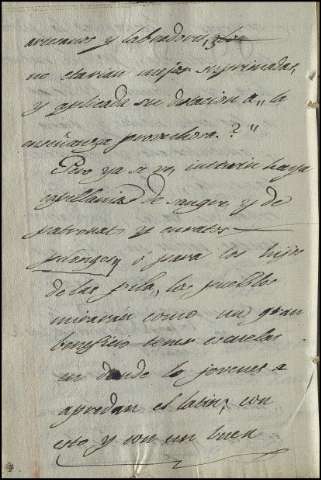 y labradores,
no estarian mejor suprimidas,
y aplicada su dotacion a,, la
enseñanza provechosa.?"
Pero ya se ve, interin haya
capellanias de sangre y de
patronato y curatos
ó para los hijos
de las pila, los pueblos
mirarán como un gran
beneficio tener escuelas
en donde los jovenes a
aprendan el latin, con
esto y con un buen